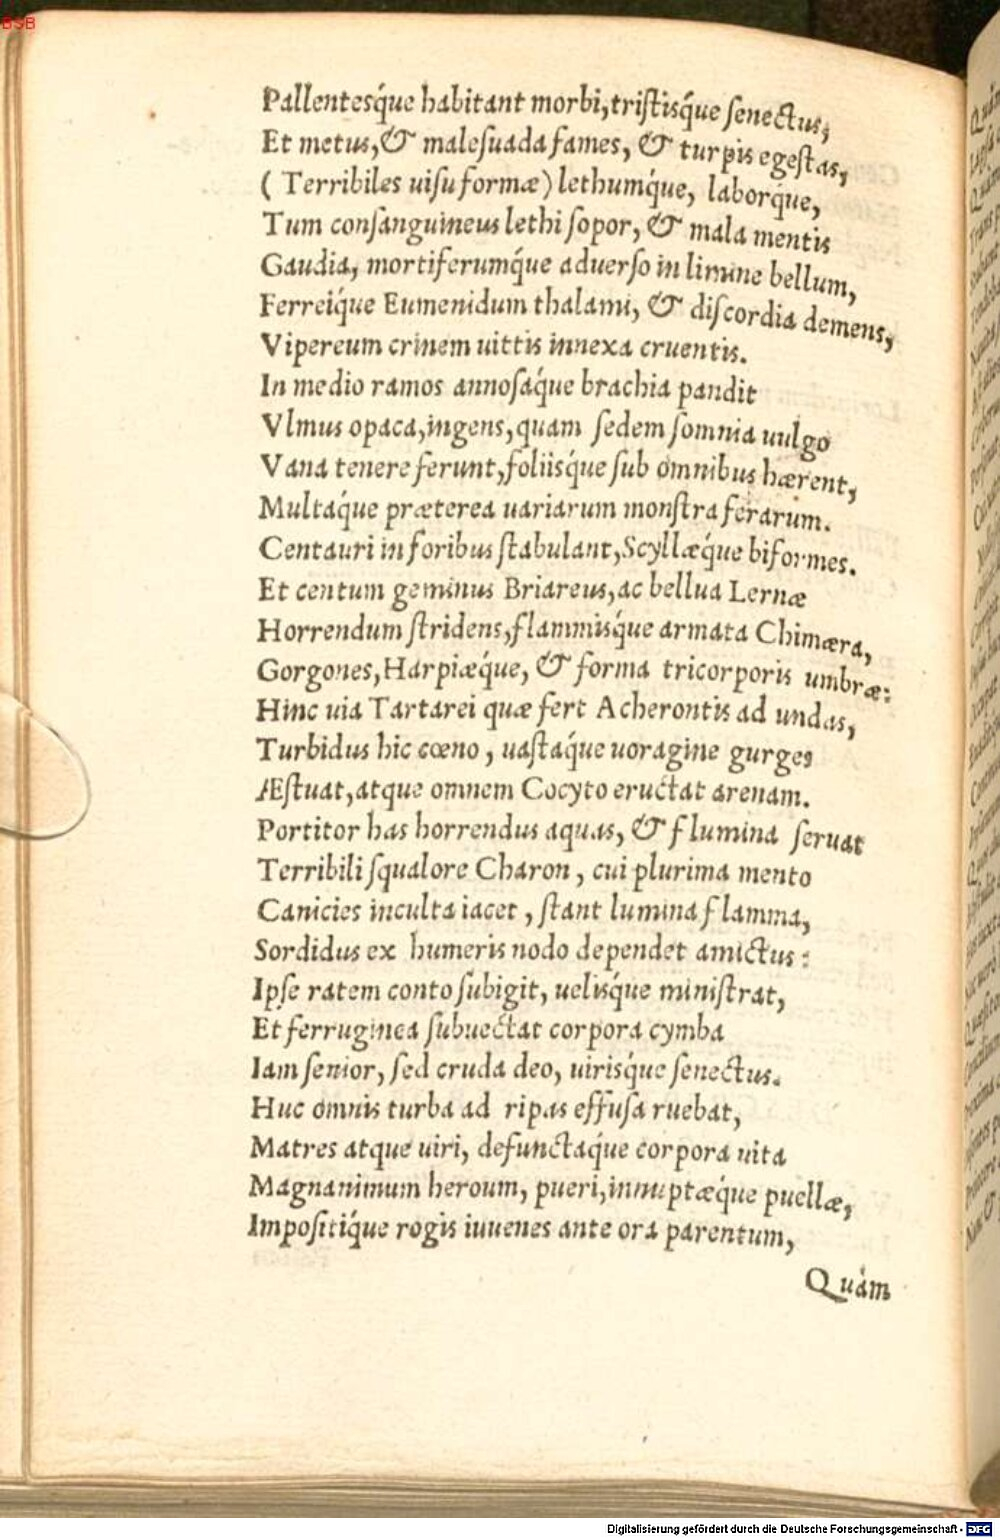 BSB
Pallentesq́ue habitant morbi, tristisq́ue senectus,
Et metus, & malesuada fames, & turpis egestas,
( Terribiles uisu formæ) lethumq́ue, laborq́ue,
Tum consanguineus lethi sopor, & mala mentis
Gaudia, mortiferumq́ue aduerso in limine bellum,
Ferreiq́ue Eumenidum thalami, & discordia demens,
Vipereum crinem uittis innexa cruentis.
In medio ramos annosaq́ue brachia pandit
Vlmus opaca, ingens, quam sedem somnia uulgo
Vana tenere ferunt, foliisq́ue sub omnibus hærent,
Multaq́ue præterea uariarum monstra ferarum.
Centauri in foribus stabulant, Scyllæq́ue biformes.
Et centum geminus Briareus, ac bellua Lernæ
Horrendum stridens, flammisq́ue armata Chimæra,
Gorgones, Harpiæq́ue, & forma tricorporis umbræ:
Hinc uia Tartarei quæ fert Acherontis ad undas,
Turbidus hic cœno, uastaq́ue uoragine gurges
Æstuat, atque omnem Cocyto eructat arenam.
Portitor has horrendus aquas, & flumina seruat
Terribili squalore Charon, cui plurima mento
Canicies inculta iacet, stant lumina flamma,
Sordidus ex humeris nodo dependet amictus:
Ipse ratem conto subigit, uelisq́ue ministrat,
Et ferruginea subuectat corpora cymba
Iam senior, sed cruda deo, uirisq́ue senectus.
Huc omnis turba ad ripas effusa ruebat,
Matres atque uiri, defunctaq́ue corpora uita
Magnanimum heroum, pueri, innuptæq́ue puellæ,
Impositiq́ue rogis iuuenes ante ora parentum,
Quàm
Digitalisierung gefördert durch die Deutsche Forschungsgemeinschaft - DFG